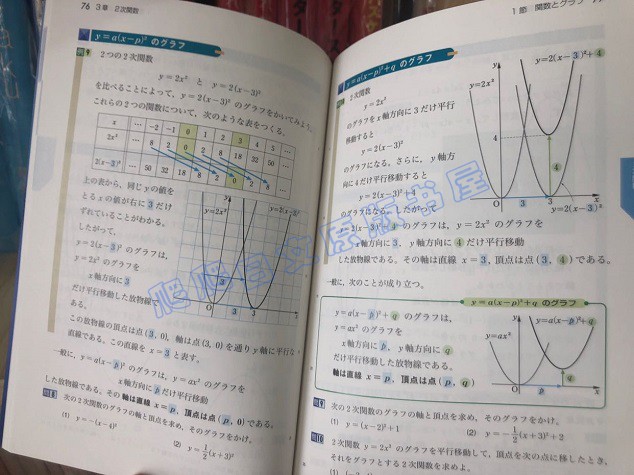 76 3章 2次関数
y=a(x-p)² のグラフ
2つの2次関数
y=2x² と y=2(x-3)²
を比べることによって，y=2(x-3)² のグラフをかいてみよう。
これらの2つの関数について，次のような表をつくる。
x … -2 -1 0 1 2 3 4 5 …
2x² … 8 2 0 2 8 18 32 50 …
2(x-3)² … 50 32 18 8 2 0 2 8 …
上の表から，同じyの値を
とるxの値が右に3だけ
ずれていることがわかる。
したがって，
y=2(x-3)² のグラフは，
y=2x² のグラフを
x軸方向に3
だけ平行移動した放物線で
ある。
y=2x² y=2(x-3)²
O 3 x
3
この放物線の頂点は点(3, 0)，軸は点(3, 0)を通りy軸に平行な
直線である。この直線を x=3 と表す。
一般に，y=a(x-p)² のグラフは，y=ax² のグラフを
x軸方向にpだけ平行移動
した放物線である。その軸は直線 x=p，頂点は点(p, 0)である。
問8 次の2次関数のグラフの軸と頂点を求め，そのグラフをかけ。
(1) y=-(x-4)²
(2) y=1/2(x+3)²
1節 関数とグラフ
y=a(x-p)²+q のグラフ
2次関数
y=2x²
のグラフをx軸方向に3だけ平行
移動すると
y=2(x-3)²
のグラフになる。さらに，y軸方
向に4だけ平行移動すると
y=2(x-3)²+4
のグラフになる。したがって，
y=2(x-3)²+4 のグラフは，y=2x² のグラフを
x軸方向に3，y軸方向に4だけ平行移動
した放物線である。その軸は直線 x=3，頂点は点(3, 4)である。
y y=2(x-3)²+4
y=2x²
4
4
O 3 3 x
y=2(x-3)²
一般に，次のことが成り立つ。
y=a(x-p)²+q のグラフ
y=a(x-p)²+q のグラフは，
y=ax² のグラフを
x軸方向にp，y軸方向にq
だけ平行移動した放物線である。
軸は直線 x=p，頂点は点(p, q)
y y=a(x-p)²+q
y=ax²
q
O p x
問9 次の2次関数のグラフの軸と頂点を求め，そのグラフをかけ。
(1) y=(x-2)²+1
(2) y=-1/2(x+3)²+2
問10 2次関数 y=2x² のグラフを平行移動して，頂点を次の点に移したとき，
それをグラフとする2次関数を求めよ。